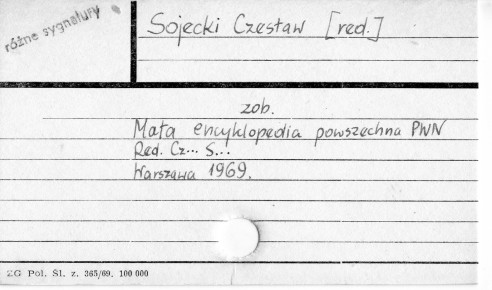 różne sygnatury
Sojecki Czesław [red.]
zob.
Mała encyklopedia powszechna PWN
Red. Cz... S...
Warszawa 1969.
ZG Pol. Śl. z. 365/69. 100 000